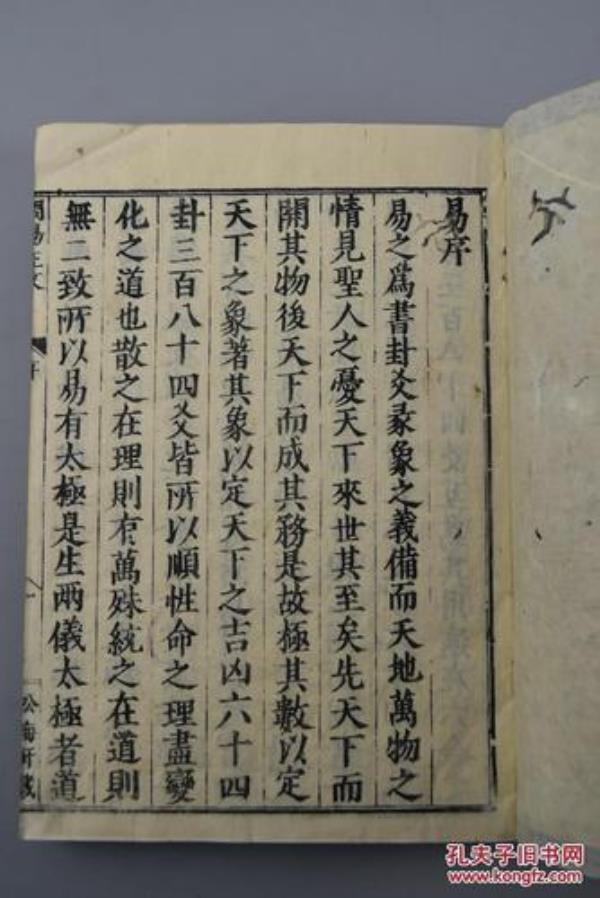 易序
易之爲書卦爻彖象之義備而天地萬物之
情見聖人之憂天下來世其至矣先天下而
開其物後天下而成其務是故極其數以定
天下之象著其象以定天下之吉凶六十四
卦三百八十四爻皆所以順性命之理盡變
化之道也散之在理則有萬殊統之在道則
無二致所以易有太極是生兩儀太極者道
孔夫子旧书网
www.kongfz.com